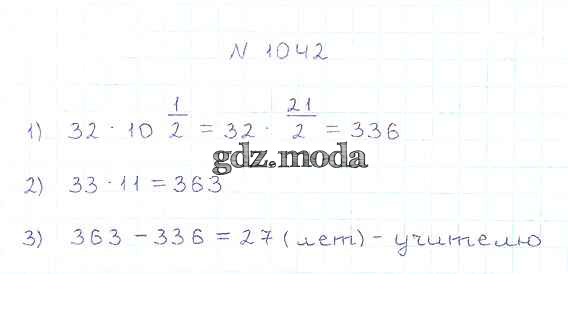 N 1042
1) 32 · 10 1/2 = 32 · 21/2 = 336
gdz.moda
2) 33 · 11 = 363
3) 363 - 336 = 27 (лет) - учителю